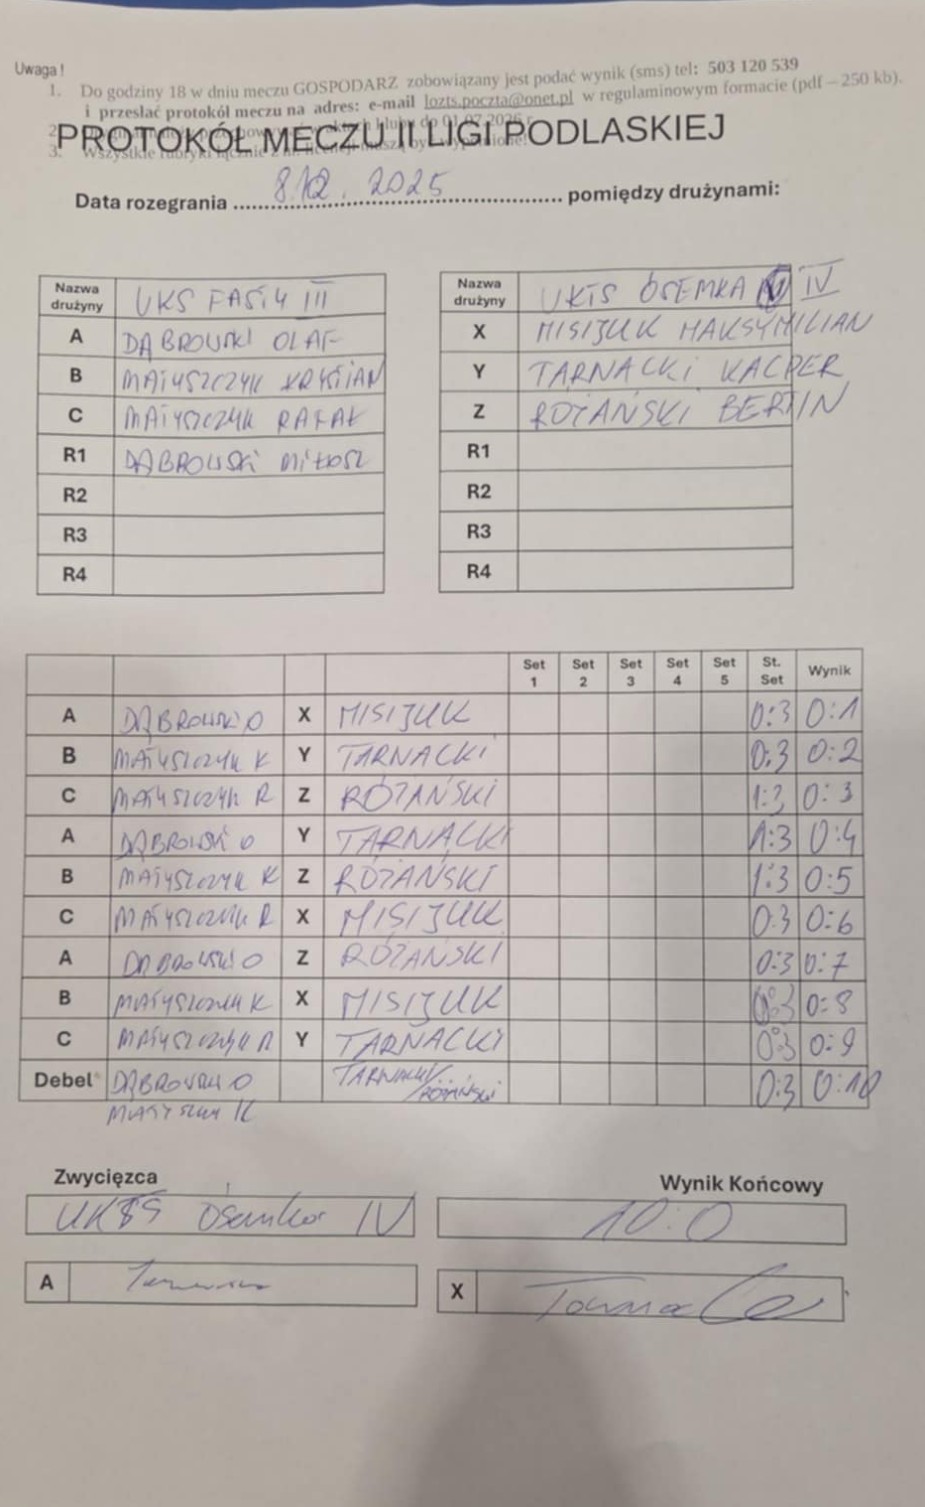 Uwaga !
1. Do godziny 18 w dniu meczu GOSPODARZ zobowiązany jest podać wynik (sms) tel: 503 120 539
i przesłać protokół meczu na adres: e-mail lozts.poczta@onet.pl w regulaminowym formacie (pdf – 250 kb).
2.
PROTOKÓŁ MECZU II LIGI PODLASKIEJ
3. Wszystkie rubryki
Data rozegrania 8.12.2025 pomiędzy drużynami:
Nazwa drużyny UKS FASTY III
A DĄBROWSKI OLAF
B MATYSZCZYK KRYSTIAN
C MATYSZCZYK RAFAŁ
R1 DĄBROWSKI MIŁOSZ
R2
R3
R4
Nazwa drużyny UKTS ÓSEMKA IV
X MISIJUK MAKSYMILIAN
Y TARNACKI KACPER
Z RÓŻAŃSKI BERTIN
R1
R2
R3
R4
Set 1 Set 2 Set 3 Set 4 Set 5 St. Set Wynik
A DĄBROWSKI O X MISIJUK 0:3 0:1
B MATYSZCZYK K Y TARNACKI 0:3 0:2
C MATYSZCZYK R Z RÓŻAŃSKI 1:3 0:3
A DĄBROWSKI O Y TARNACKI 1:3 0:4
B MATYSZCZYK K Z RÓŻAŃSKI 1:3 0:5
C MATYSZCZYK R X MISIJUK 0:3 0:6
A DĄBROWSKI O Z RÓŻAŃSKI 0:3 0:7
B MATYSZCZYK K X MISIJUK 0:3 0:8
C MATYSZCZYK R Y TARNACKI 0:3 0:9
Debel DĄBROWSKI O TARNACKI/RÓŻAŃSKI 0:3 0:10
MATYSZCZYK K
Zwycięzca
UKTS Ósemka IV
Wynik Końcowy
10:0
A
X